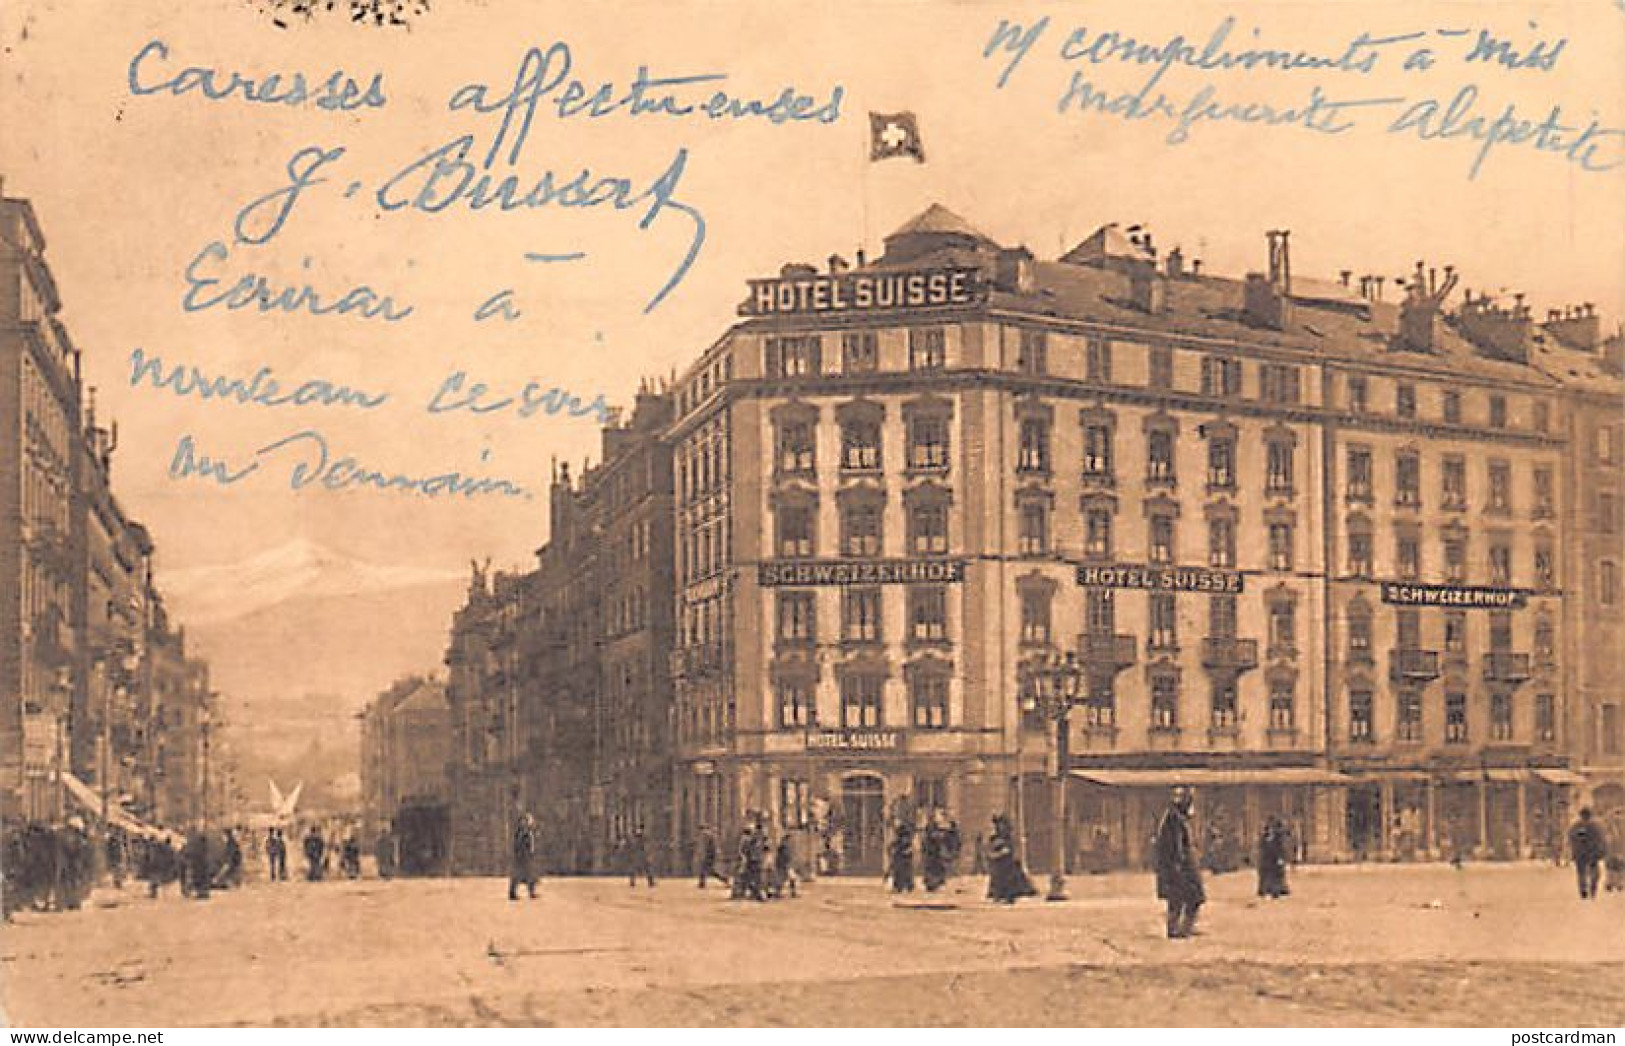 Caresses affectueuses
J. Bussat
Ecrirai à
nouveau ce soir
ou Demain
compliments à Miss
Marguerite Alapetite
HOTEL SUISSE
SCHWEIZERHOF
HOTEL SUISSE
SCHWEIZERHOF
HOTEL SUISSE
delcampe.net
postcardman